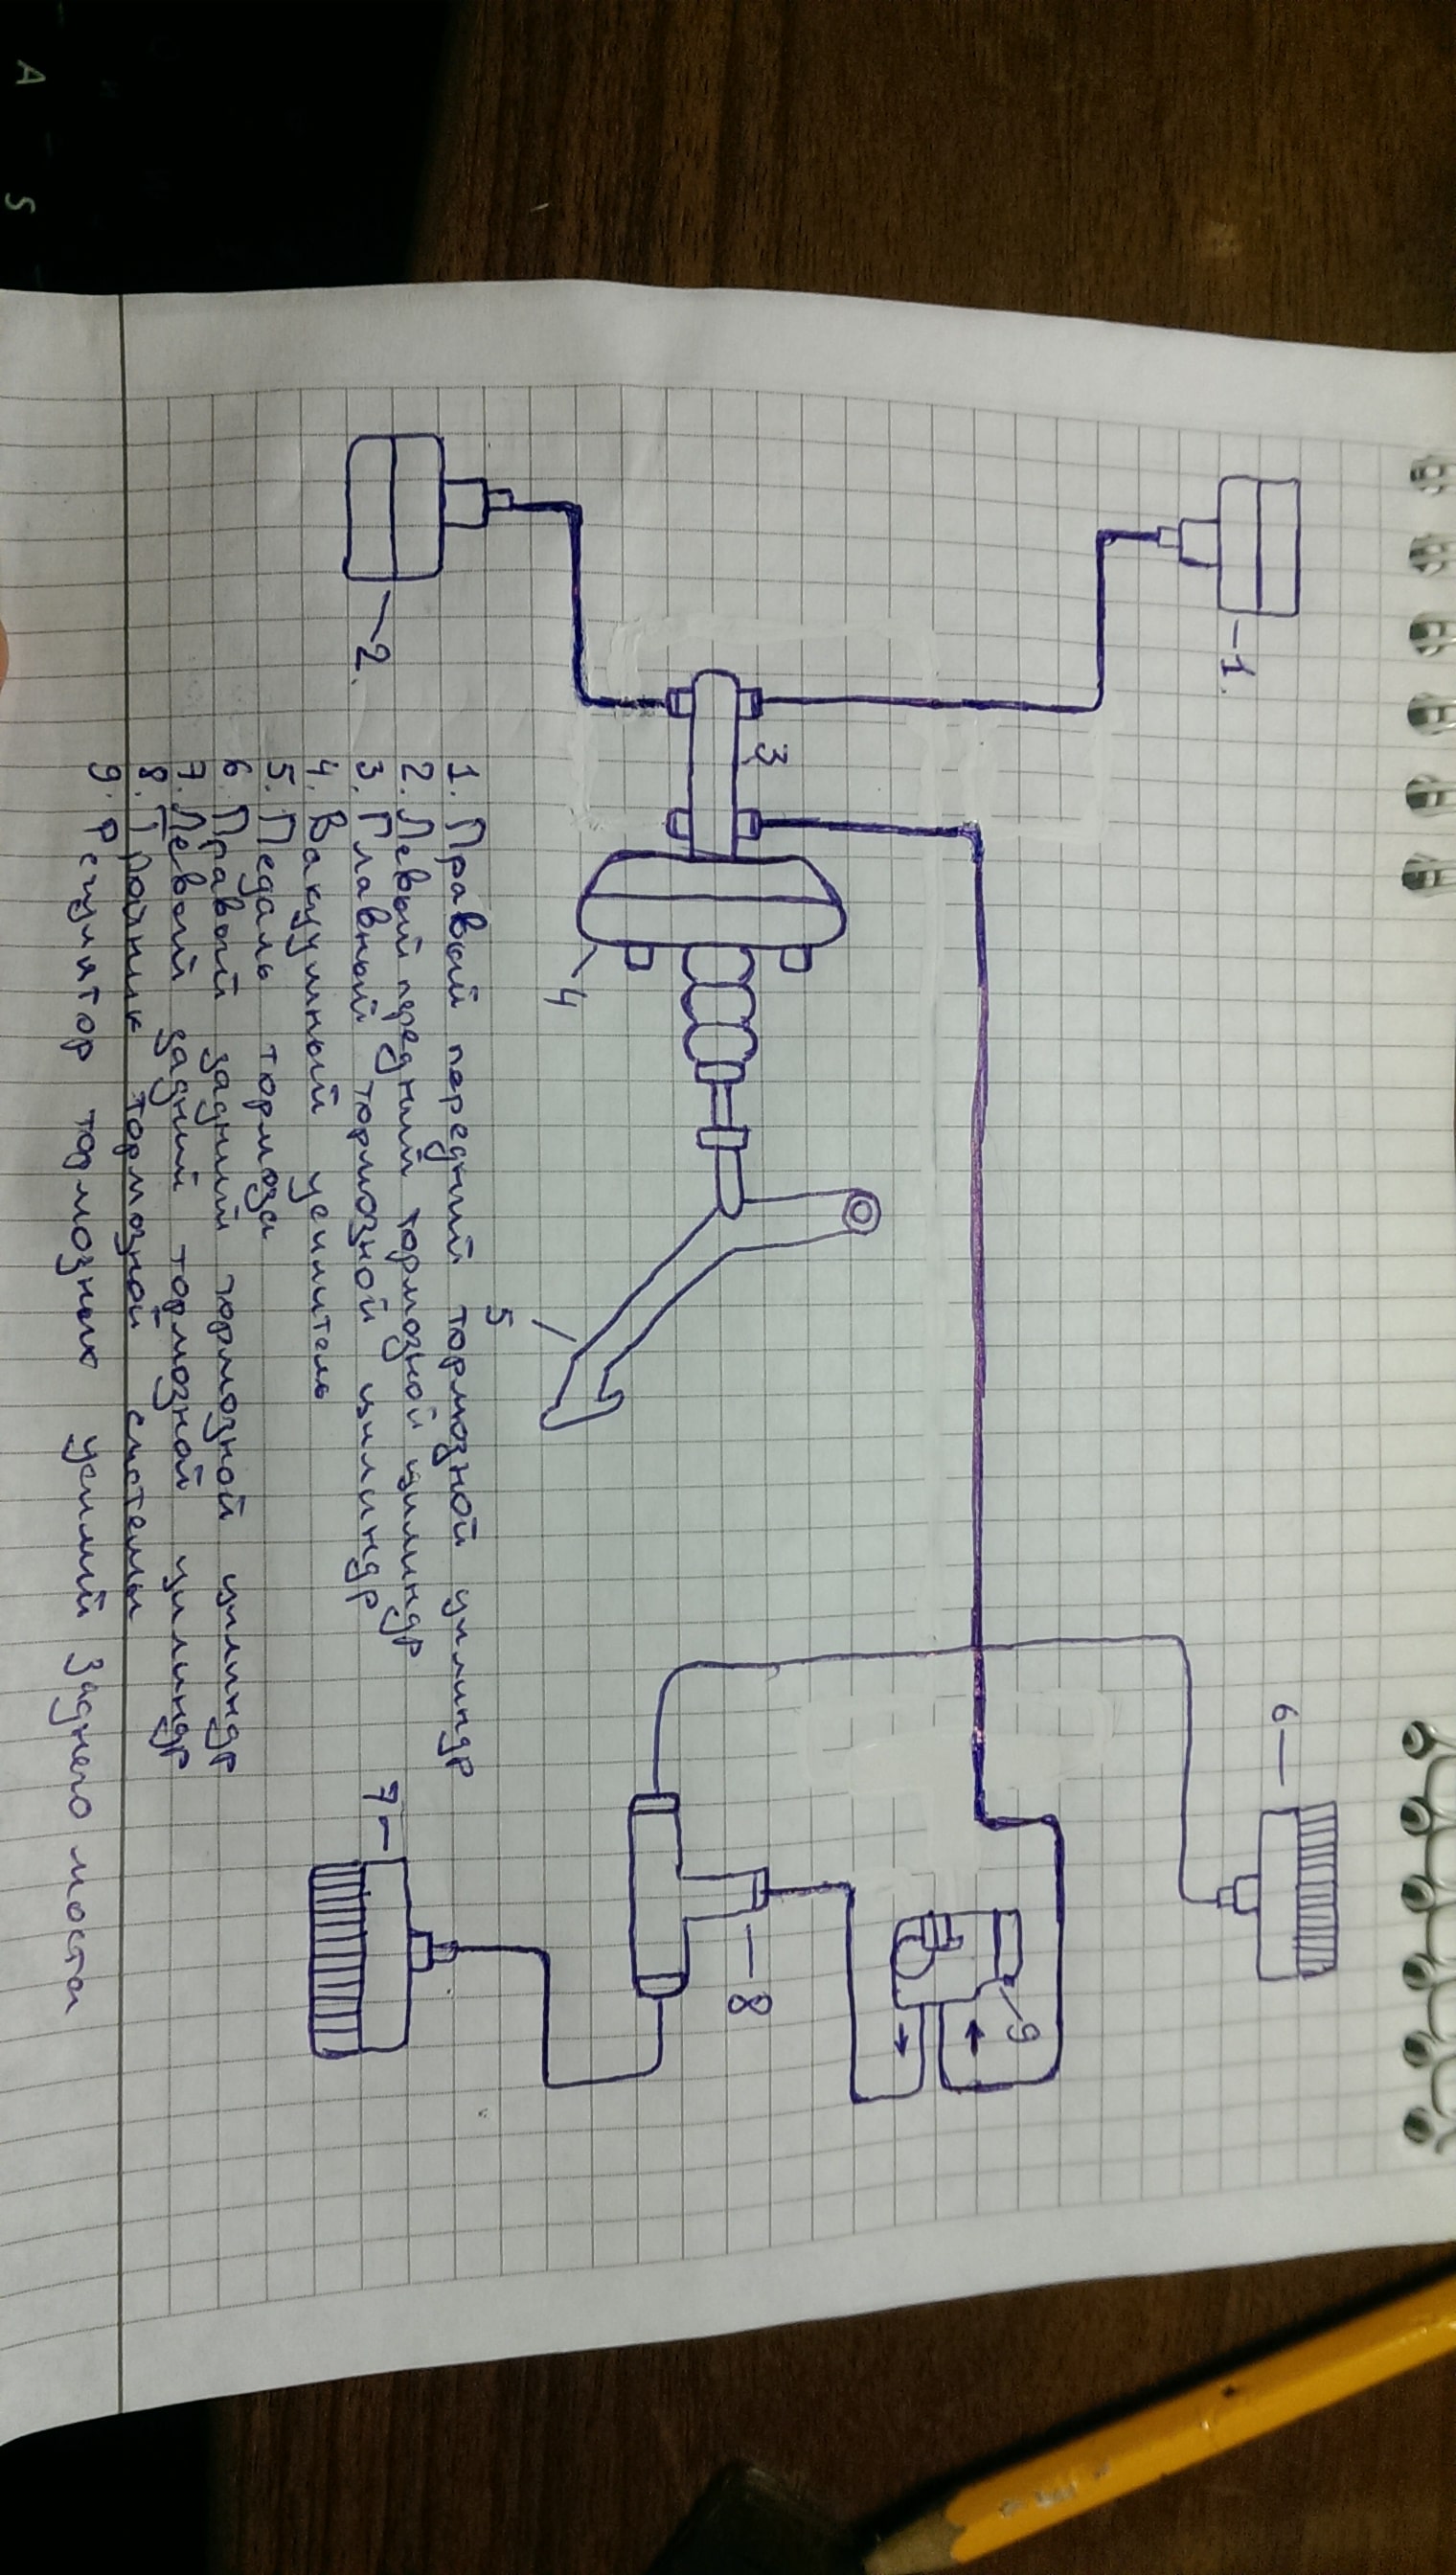 1.
2.
3
4
5
6
7
8
9
1. Правый передний тормозной цилиндр
2. Левый передний тормозной цилиндр
3. Главный тормозной цилиндр
4. Вакуумный усилитель
5. Педаль тормоза
6. Правый задний тормозной цилиндр
7. Левый задний тормозной цилиндр
8. Тройник тормозной системы
9. Регулятор тормозных усилий заднего моста
A S